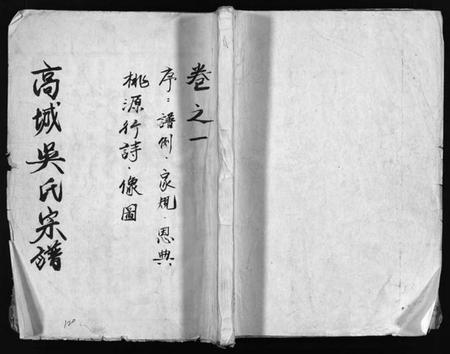 卷之一
序：譜例．家規．恩典
桃源行詩．像圖
高城吳氏宗譜